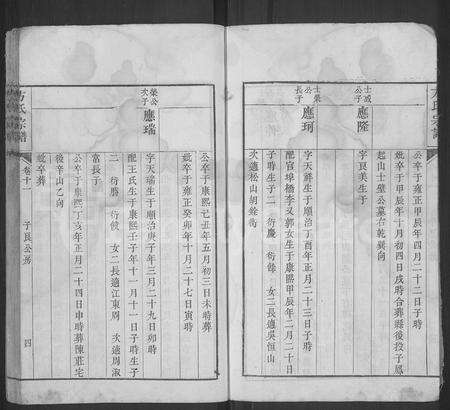 方氏宗譜
公卒于雍正甲辰年四月二十二日子時
妣卒于甲辰年十月初四日戌時合葬縣後投子鳳
起山士璧公墓右乾巽向
士威公子
應隆
字良美生于
士榮公長子
應珂
字天祥生于順治丁酉年正月二十三日子時
配官埠橋李又郭女生于康熙甲辰年二月二十日
時生子二 衍慶 衍餘 女二長適吳恒山
次適松山胡銓衡
公卒于康熙己丑年五月初三日未時葬
妣卒于雍正癸卯年十月二十七日寅時
榮公次子
應瑞
字天瑞生于順治庚子年三月二十九日卯時
配王氏生于康熙壬子年十一月十一日子時生子
二 衍勝 衍 女二長適江東周 次適周淑
當長子
公卒于康熙丁亥年正月二十四日申時葬陳莊宅
後辛山乙向
妣卒葬
方氏宗譜
卷十一
子良公房
四